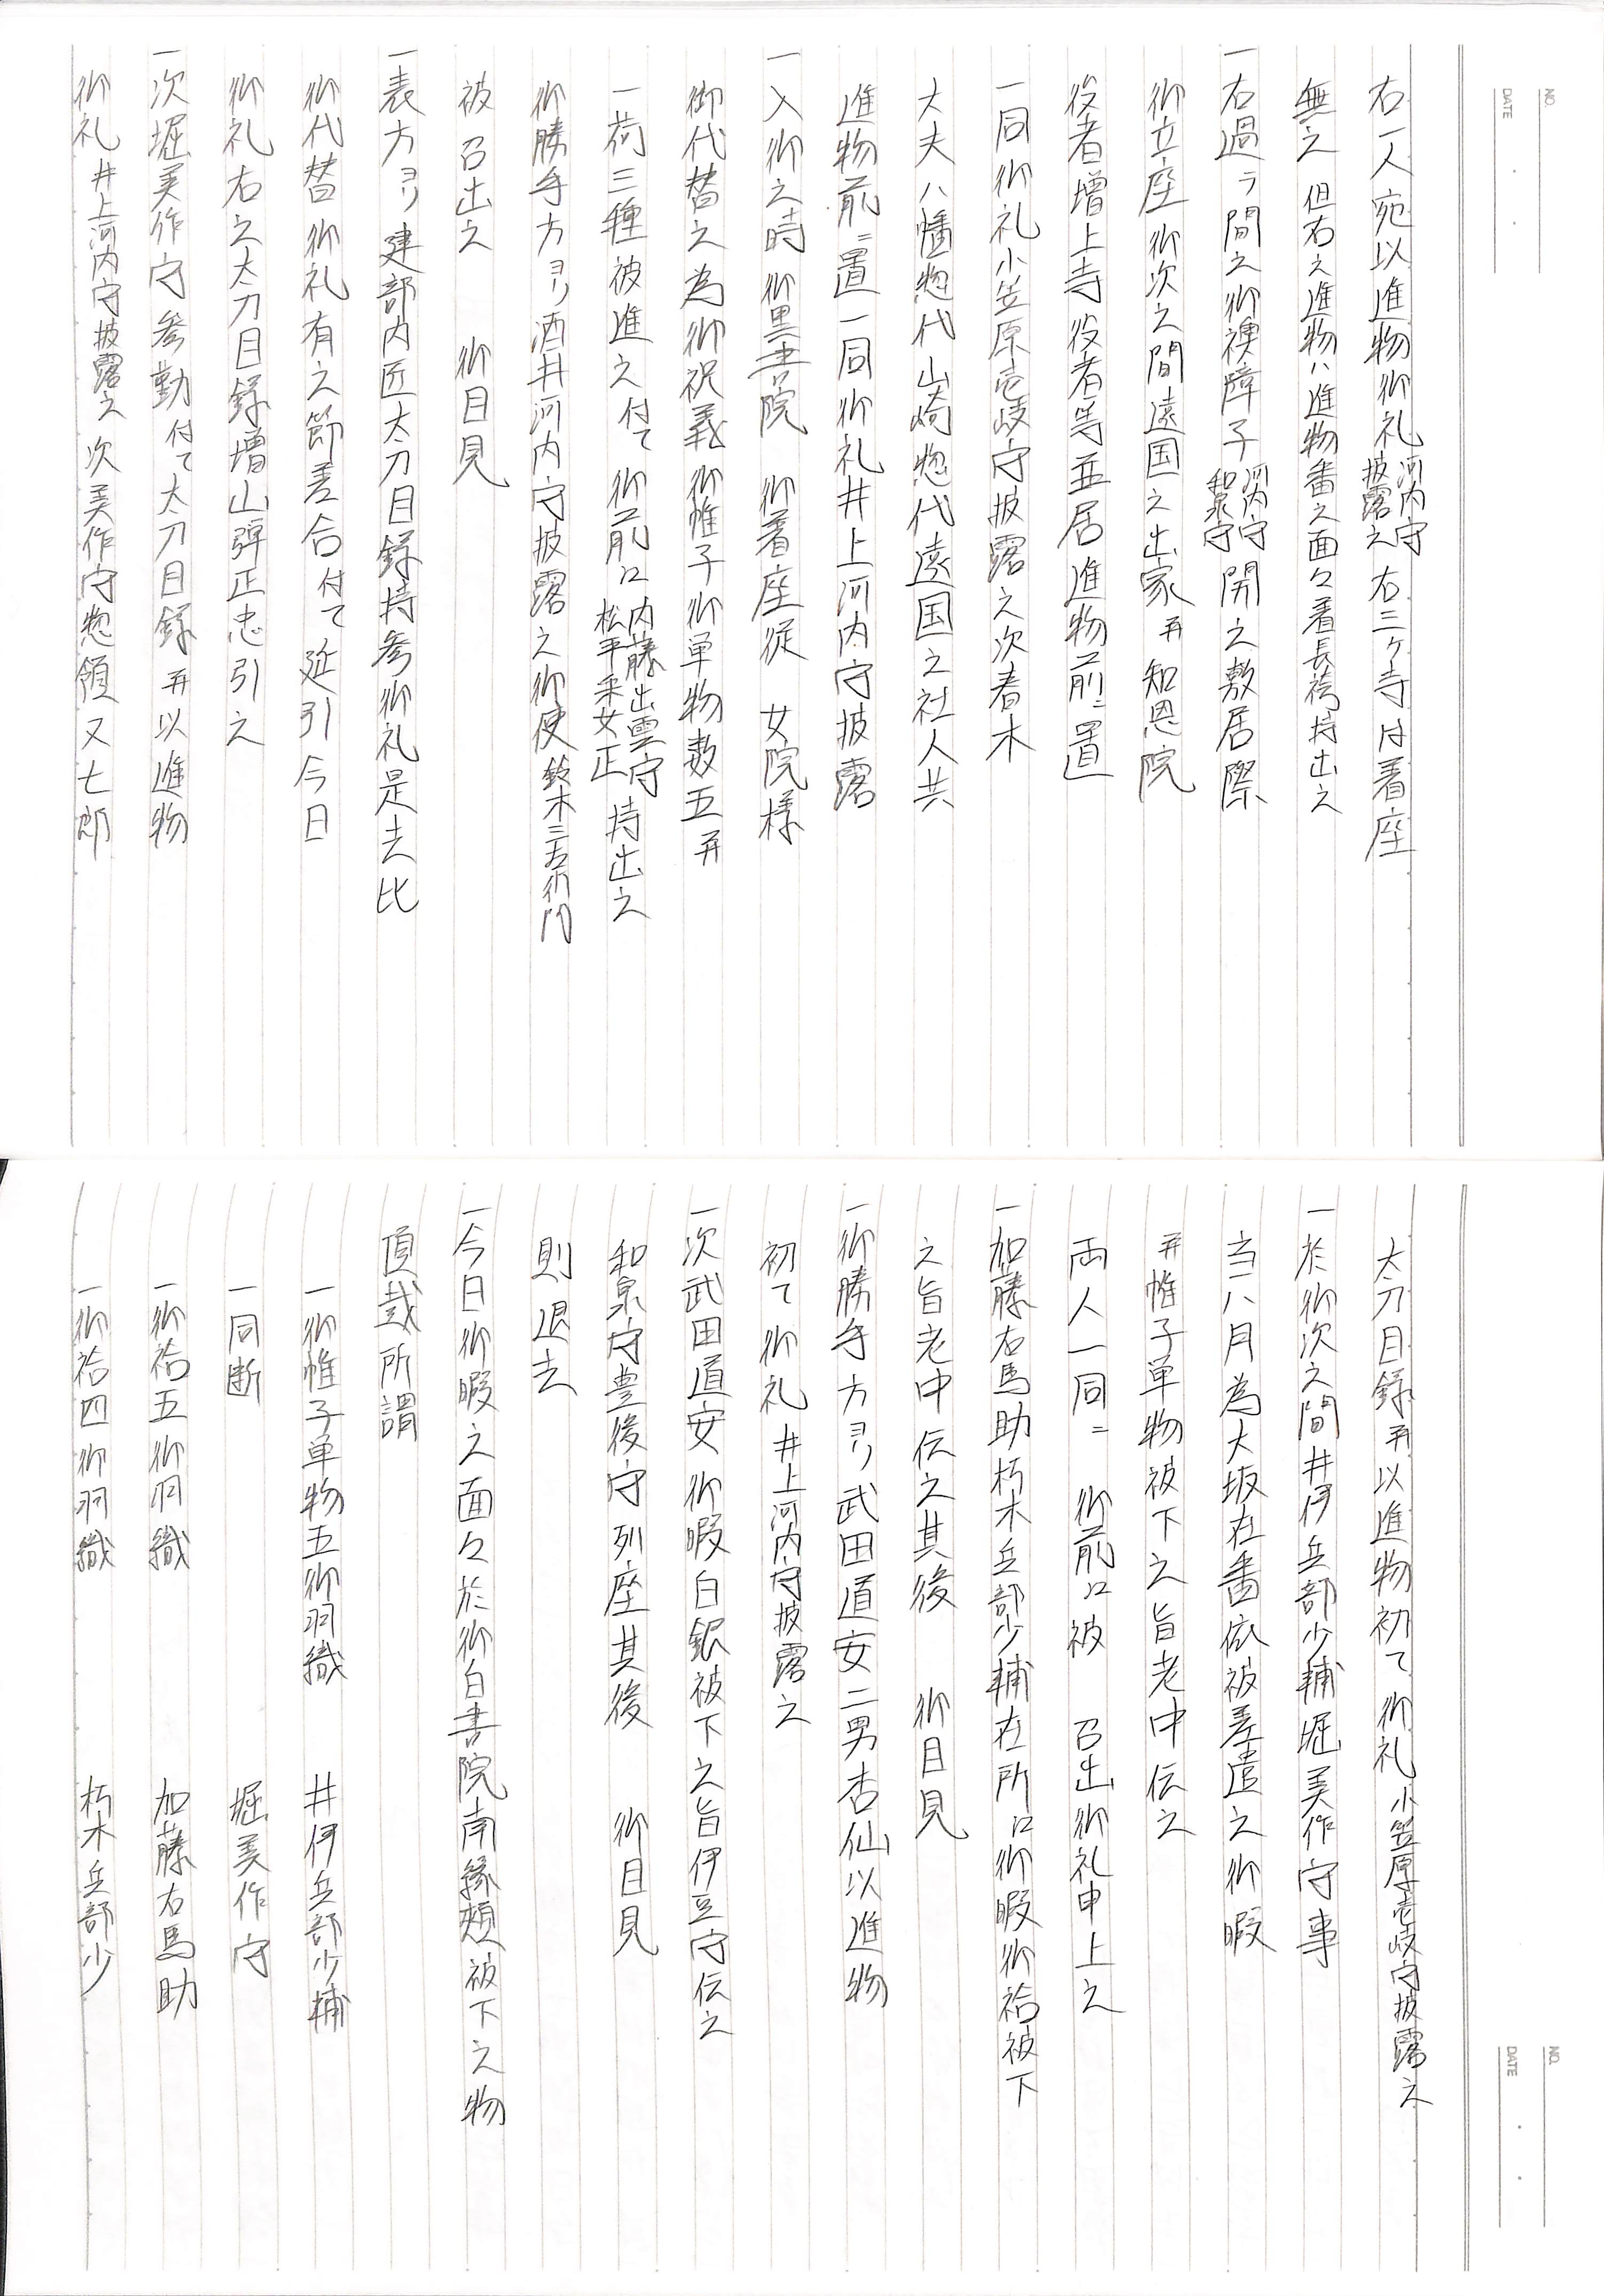 NO.
DATE
右一人宛以進物御礼 河内守 披露之 右三ヶ寺は着座
無之 但右之進物ハ進物番之面々着長袴持出之
一右過テ間之御襖障子 河内守 和泉守 開之敷居際
御立座御次之間遠国之出家并知恩院
役者増上寺役者等並居進物前ニ置
一同御礼小笠原壱岐守披露之次春木
大夫八幡惣代山崎惣代遠国之社人共
進物前ニ置一同御礼井上河内守披露
一入御之時 御黒書院 御着座従 女院様
御代替之為御祝義御帷子御単物数五并
一荷三種被進之付て 御前江 内藤出雲守 松平采女正 持出之
御勝手方ゟ酒井河内守披露之御使 鈴木三左衛門
被 召出之 御目見
一表方ゟ建部内匠太刀目録持参御礼是去比
御代替御礼有之節差合付て延引今日
御礼右之太刀目録増山弾正忠引之
一次堀美作守参勤付て太刀目録并以進物
御礼 井上河内守披露之 次美作守惣領又七郎
NO.
DATE
太刀目録并以進物初て御礼 小笠原壱岐守披露之
一於御次之間井伊兵部少輔堀美作守事
当八月為大坂在番依被差遣之御暇
并帷子単物被下之旨老中伝之
両人一同ニ 御前江被 召出御礼申上之
一加藤右馬助朽木兵部少輔在所江御暇御袷被下
之旨老中伝之其後 御目見
一御勝手方ゟ武田道安二男杏仙以進物
初て御礼 井上河内守披露之
一次武田道安御暇白銀被下之旨伊豆守伝之
和泉守豊後守列座其後 御目見
則退去
一今日御暇之面々於御白書院南縁頬被下之物
頂戴所謂
一御帷子単物五御羽織 井伊兵部少輔
一同断 堀美作守
一御袷五御羽織 加藤右馬助
一御袷四御羽織 朽木兵部少